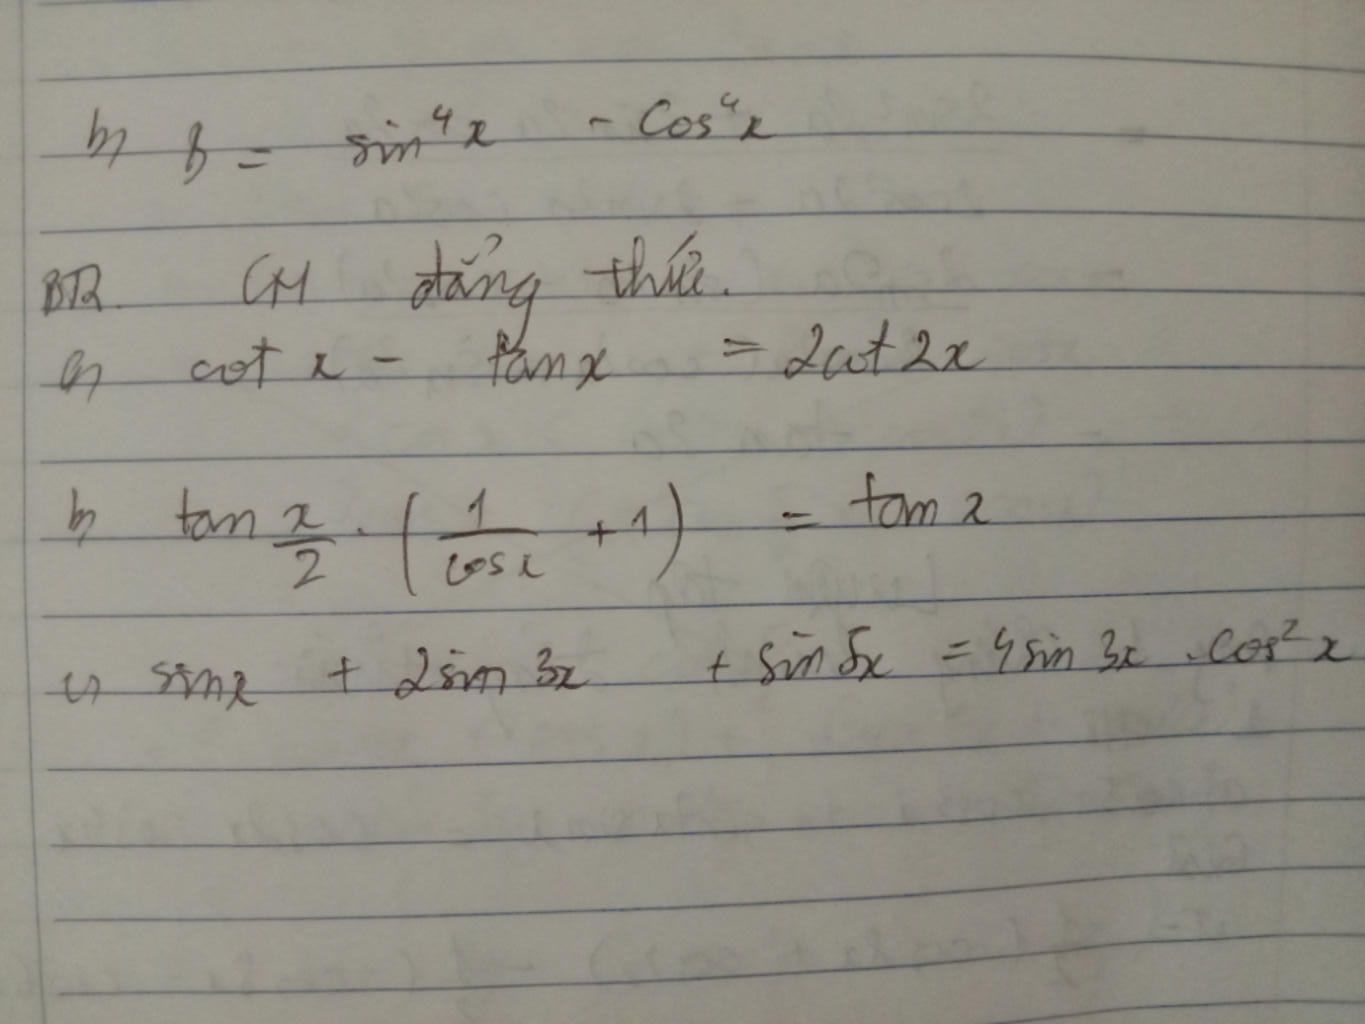 b) B = sin⁴x - cos⁴x
BT2. CM đẳng thức.
a) cot x - tan x = 2cot 2x
b) tan x/2 . (1/cosx + 1) = tan x
c) sinx + 2sin 3x + sin 5x = 4sin 3x . cos² x